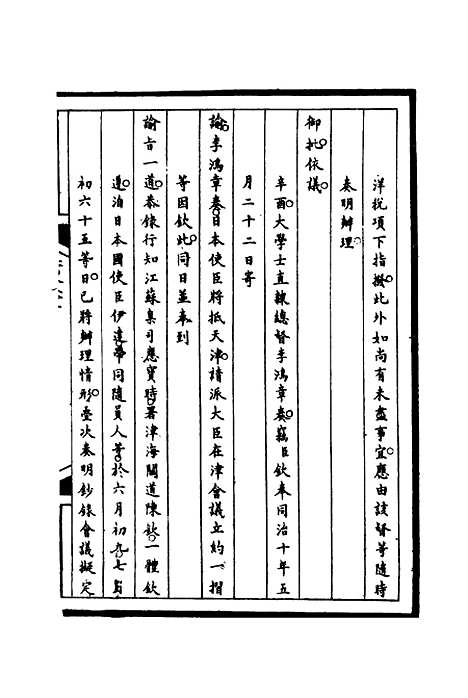 洋稅項下指撥此外如尚有未盡事宜應由該督等隨時
奏明辦理
御批依議
辛酉大學士直隸總督李鴻章奏竊臣欽奉同治十年五
月二十二日寄
諭李鴻章奏日本使臣將抵天津請派大臣在津會議立約一摺
等因欽此同日並奉到
諭旨一道恭錄行知江蘇臬司應寶時署津海關道陳欽一體欽
遵洎日本國使臣伊達帶同隨員人等於六月初九七員
初六十五等日已將辦理情形疊次奏明鈔錄會議擬定